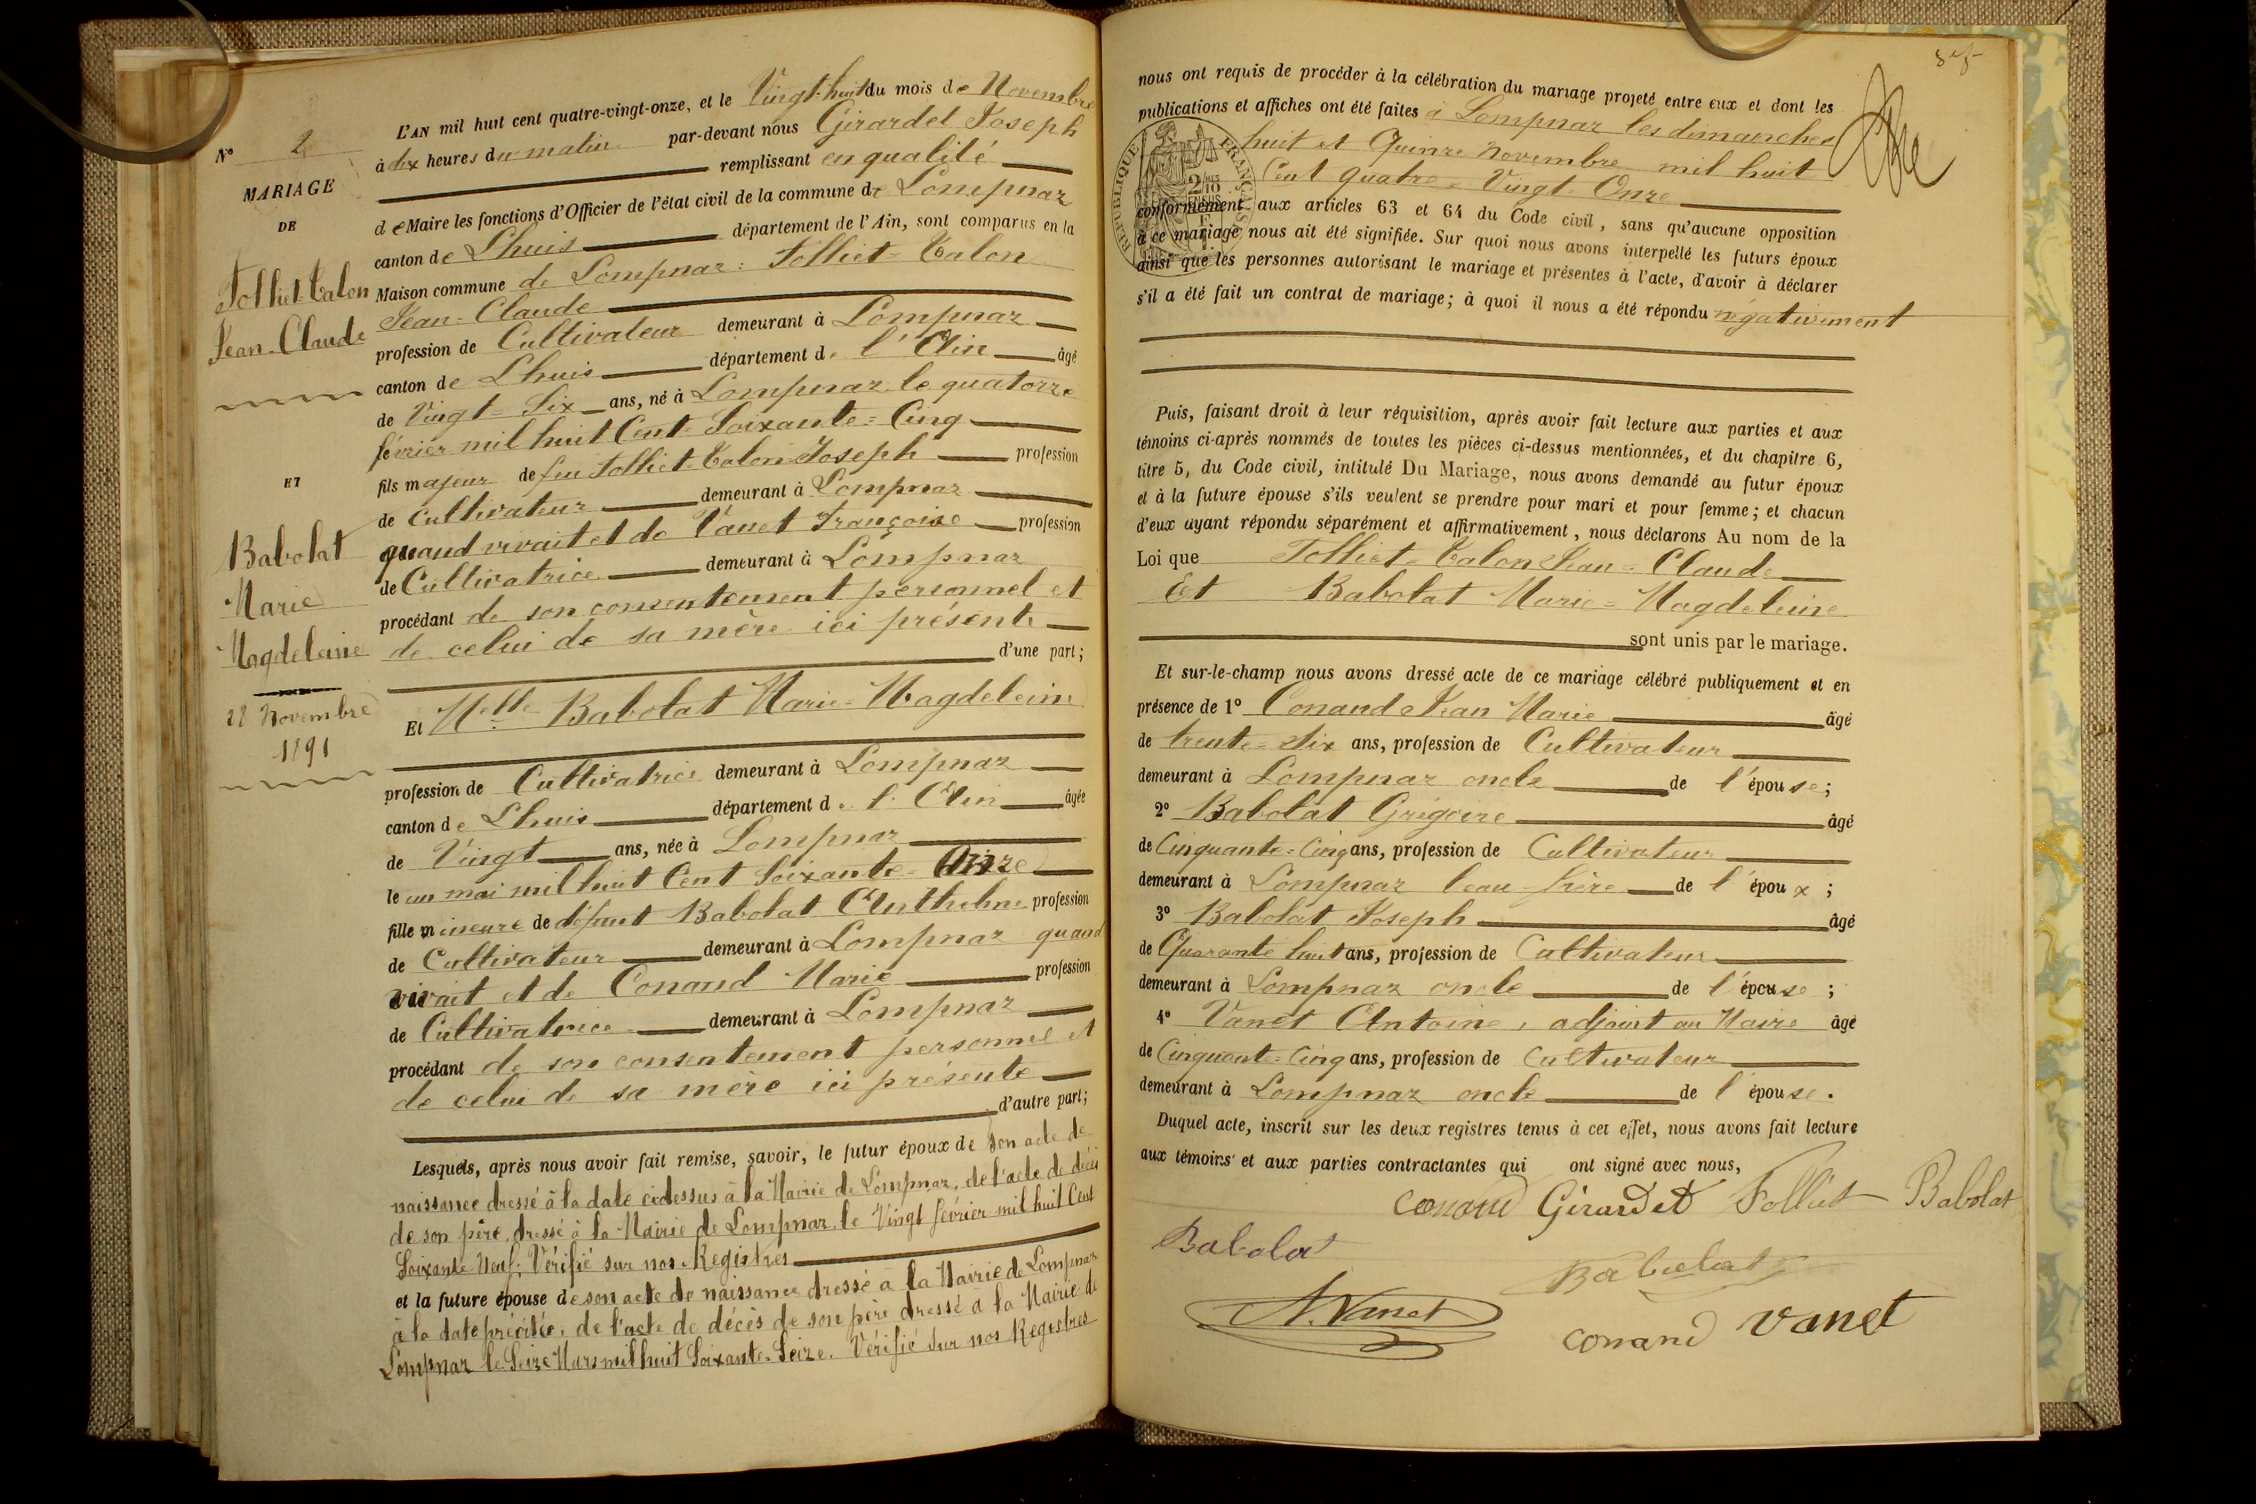 N° 2
MARIAGE
DE
Folliet-Talon
Jean-Claude
ET
Babolat
Marie
Magdeleine
28 Novembre
1891
L'AN mil huit cent quatre-vingt-onze, et le Vingt-huit du mois de Novembre
à dix heures du matin par-devant nous Girardet Joseph
remplissant en qualité
de Maire les fonctions d'Officier de l'état civil de la commune de Lompnaz
canton de Lhuis département de l'Ain, sont comparus en la
Maison commune de Lompnaz : Folliet-Talon
Jean-Claude
profession de Cultivateur demeurant à Lompnaz
canton de Lhuis département de l'Ain âgé
de Vingt-Six ans, né à Lompnaz le quatorze
février mil huit Cent Soixante-Cinq
fils majeur de feu Folliet-Talon Joseph profession
de Cultivateur demeurant à Lompnaz
quand vivait et de Vanet Françoise profession
de Cultivatrice demeurant à Lompnaz
procédant de son consentement personnel et
de celui de sa mère ici présente
d'une part;
Et Melle Babolat Marie-Magdeleine
profession de Cultivatrice demeurant à Lompnaz
canton de Lhuis département de l'Ain âgée
de Vingt ans, née à Lompnaz
le un mai mil huit Cent Soixante-Onze
fille mineure de défunt Babolat Anthelme profession
de Cultivateur demeurant à Lompnaz quand
vivait et de Conand Marie profession
de Cultivatrice demeurant à Lompnaz
procédant de son consentement personnel et
de celui de sa mère ici présente
d'autre part;
Lesquels, après nous avoir fait remise, savoir, le futur époux de son acte de
naissance dressé à la date cidessus à la Mairie de Lompnaz, de l'acte de décès
de son père, dressé à la Mairie de Lompnaz le Vingt février mil huit Cent
Soixante Neuf; Vérifié sur nos Registres
et la future épouse de son acte de naissance dressé à la Mairie de Lompnaz
à la date précitée, de l'acte de décès de son père dressé à la Mairie de
Lompnaz le Seize Mars mil huit Soixante-Seize. Vérifié sur nos Registres
nous ont requis de procéder à la célébration du mariage projeté entre eux et dont les
publications et affiches ont été faites à Lompnaz les dimanches
huit et Quinze Novembre mil huit
Cent quatre-Vingt-Onze
conformément aux articles 63 et 64 du Code civil, sans qu'aucune opposition
à ce mariage nous ait été signifiée. Sur quoi nous avons interpellé les futurs époux
ainsi que les personnes autorisant le mariage et présentes à l'acte, d'avoir à déclarer
s'il a été fait un contrat de mariage; à quoi il nous a été répondu négativement
RÉPUBLIQUE FRANÇAISE
Puis, faisant droit à leur réquisition, après avoir fait lecture aux parties et aux
témoins ci-après nommés de toutes les pièces ci-dessus mentionnées, et du chapitre 6,
titre 5, du Code civil, intitulé Du Mariage, nous avons demandé au futur époux
et à la future épouse s'ils veulent se prendre pour mari et pour femme; et chacun
d'eux ayant répondu séparément et affirmativement, nous déclarons Au nom de la
Loi que Folliet-Talon Jean-Claude
Et Babolat Marie-Magdeleine
sont unis par le mariage.
Et sur-le-champ nous avons dressé acte de ce mariage célébré publiquement et en
présence de 1° Conand Jean Marie âgé
de trente-Six ans, profession de Cultivateur
demeurant à Lompnaz oncle de l'épouse;
2° Babolat Grégoire âgé
de Cinquante-Cinq ans, profession de Cultivateur
demeurant à Lompnaz beau-frère de l'époux;
3° Babolat Joseph âgé
de Quarante huit ans, profession de Cultivateur
demeurant à Lompnaz oncle de l'épouse;
4° Vanet Antoine, adjoint au Maire âgé
de Cinquante-Cinq ans, profession de Cultivateur
demeurant à Lompnaz oncle de l'épouse.
Duquel acte, inscrit sur les deux registres tenus à cet effet, nous avons fait lecture
aux témoins et aux parties contractantes qui ont signé avec nous,
Conand Girardet Folliet Babolat
Babolat Babolat
A. Vanet Conand Vanet